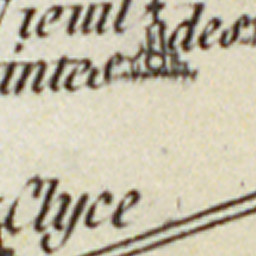 Vieuil des
intes
Clyce